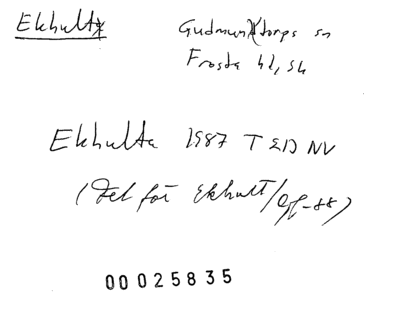 Ekhult
Gudmuntorps sn
Frosta hd, Sk
Ekhulta 1987 T 2D NV
(Fel för Ekhult/ -88)
00025835